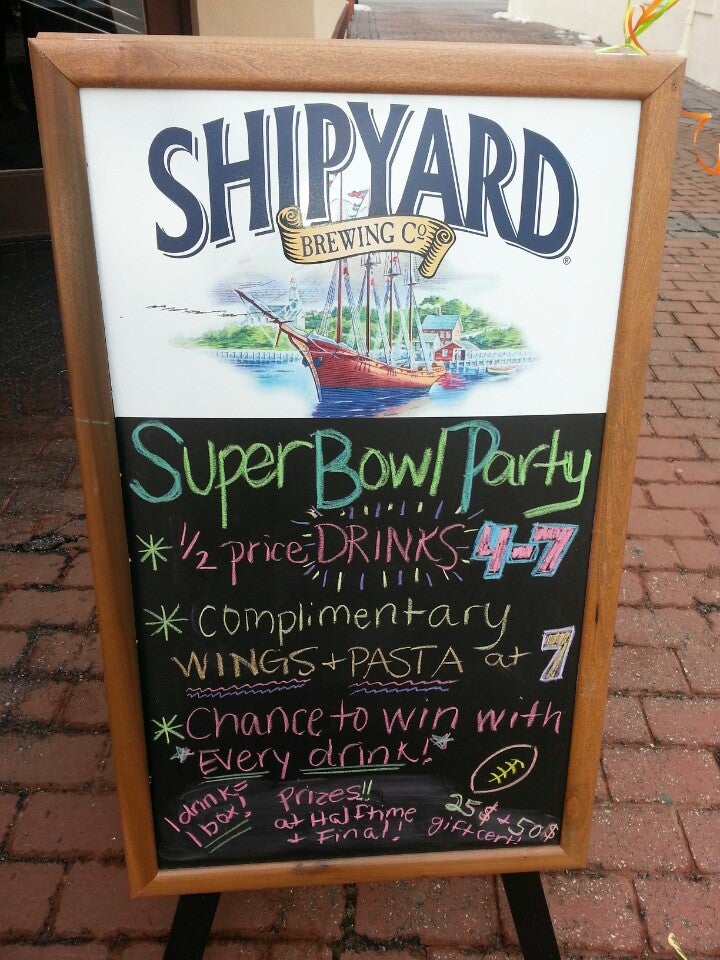 SHIPYARD
BREWING Co
Super Bowl Party
* 1/2 price DRINKS 4-7
* Complimentary
WINGS + PASTA at 7
* Chance to win with
* Every drink! *
1 drink =
1 box!
Prizes!!
at Halftime
+ Final!
25$ + 50$
gift cert!